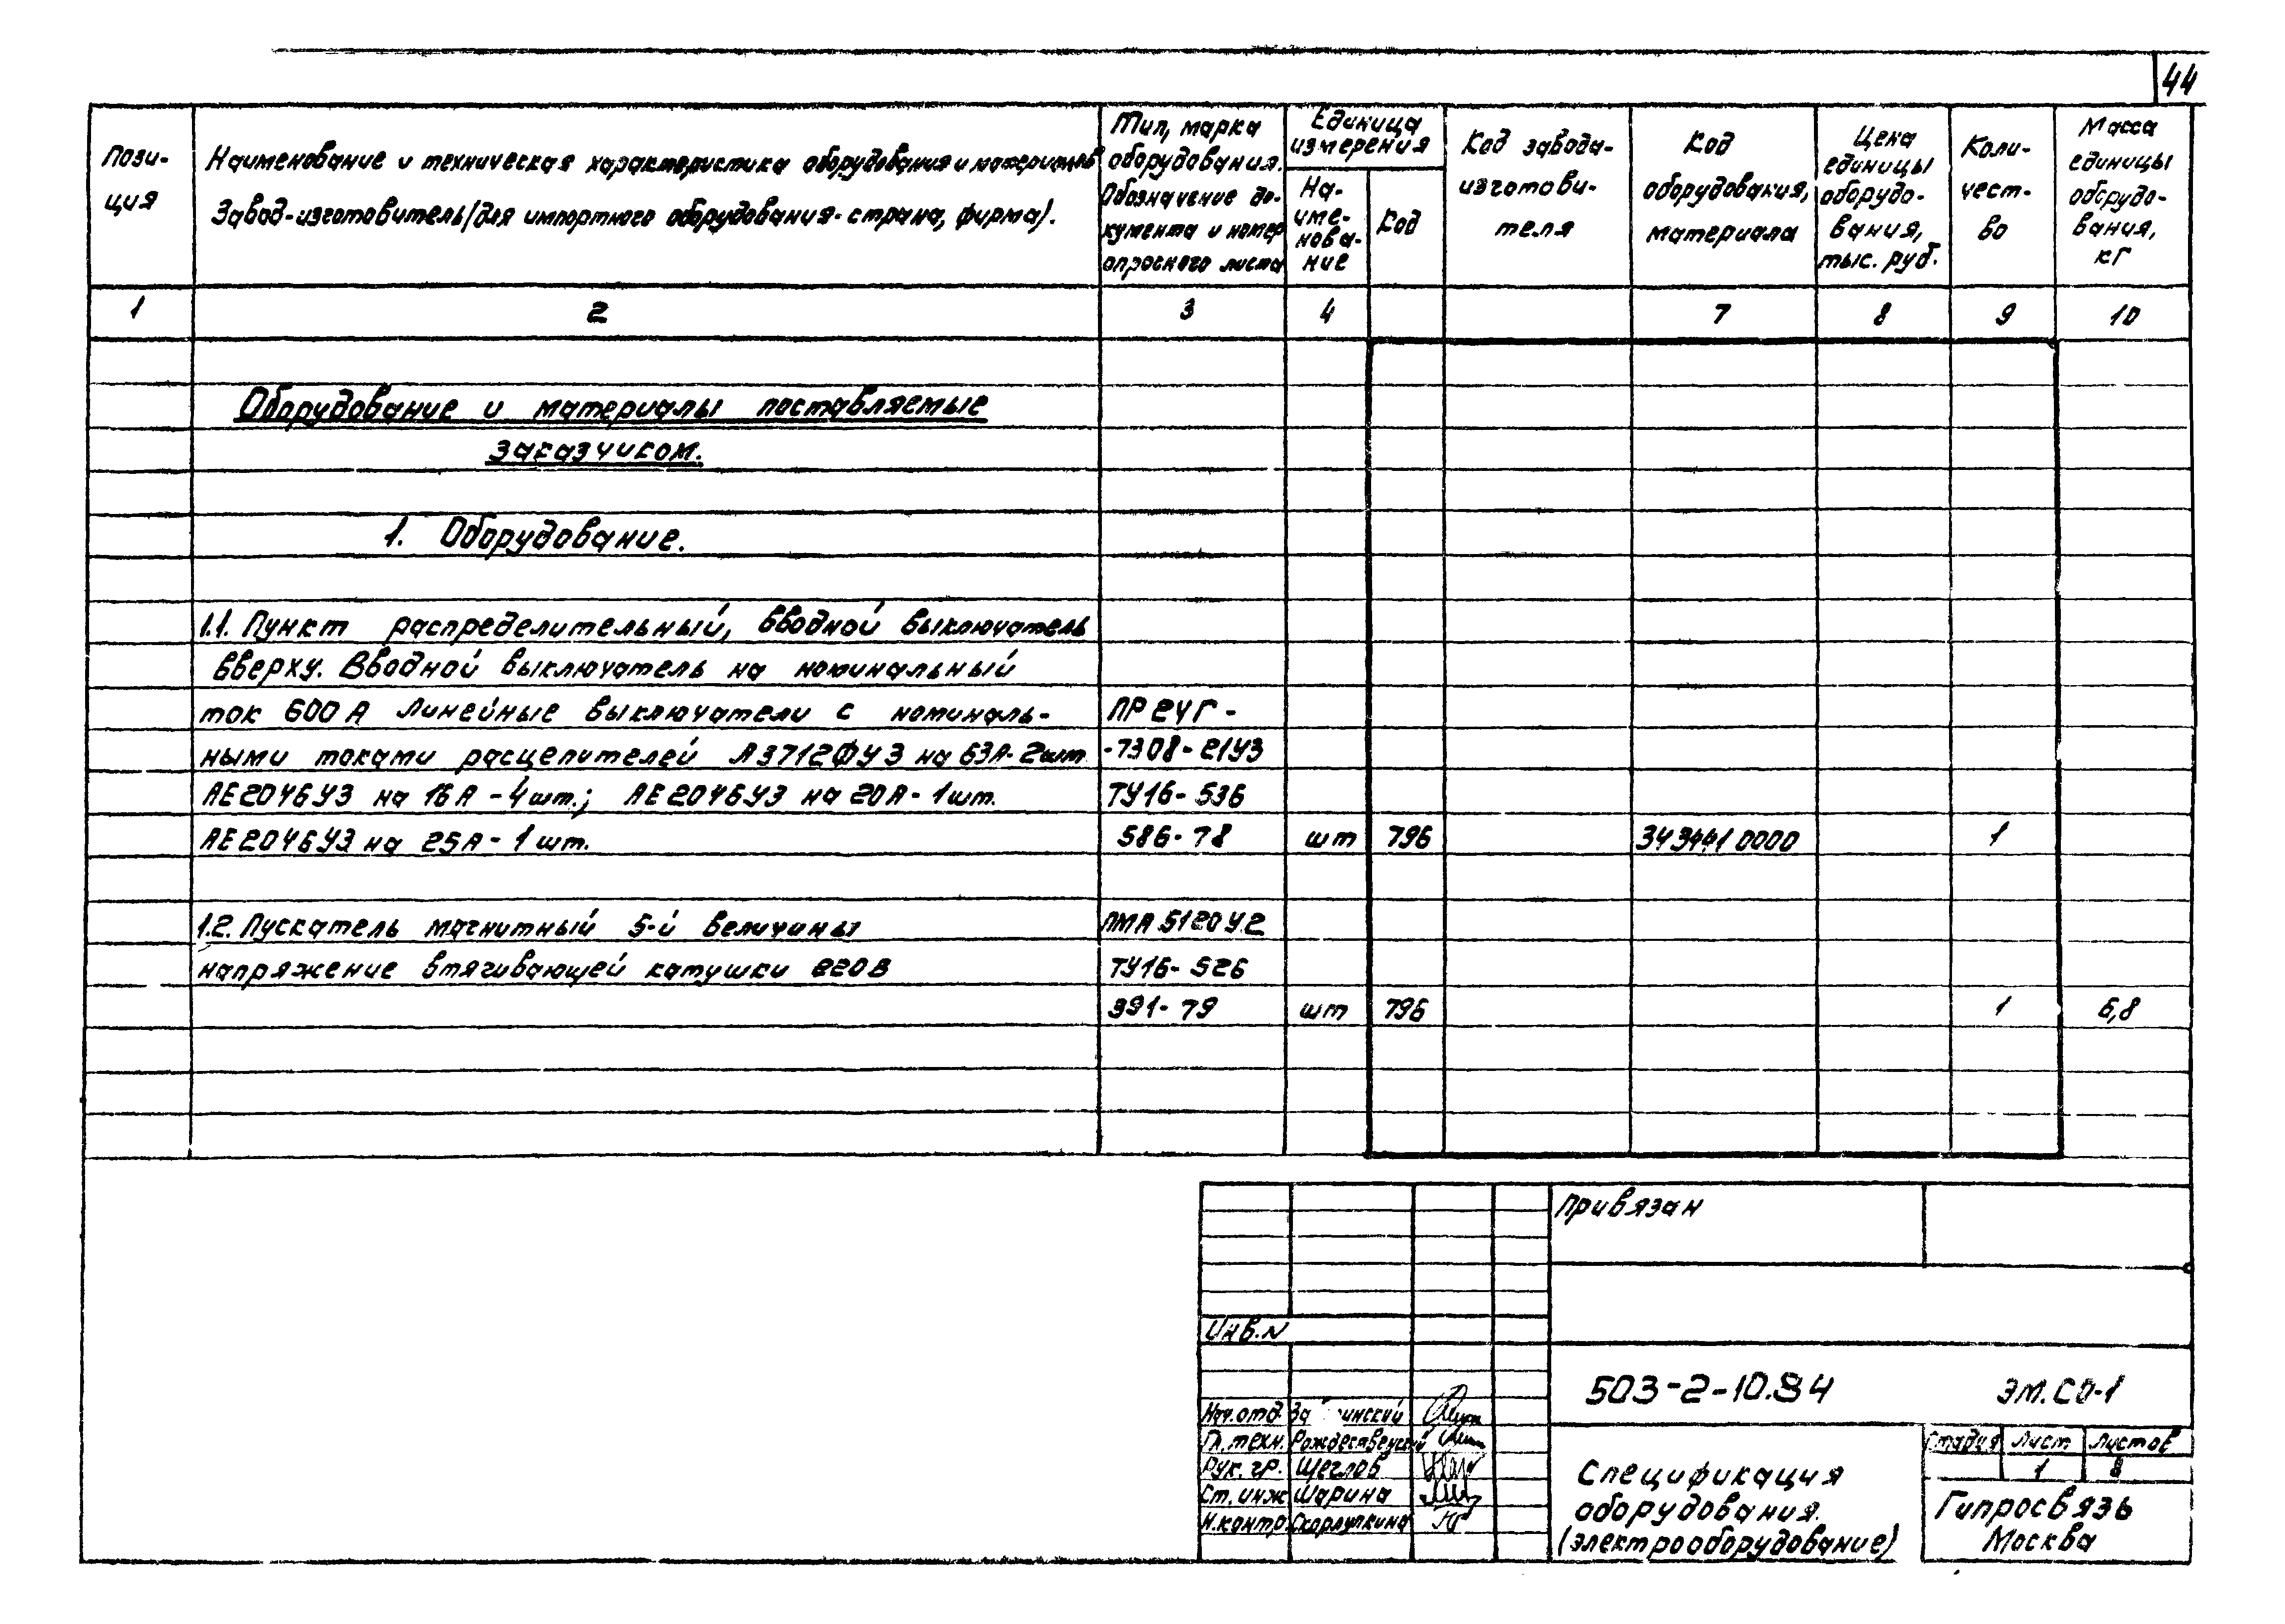 44
Пози-
ция
Наименование и техническая характеристика оборудования и материалов
Завод-изготовитель (для импортного оборудования - страна, фирма).
Тип, марка
оборудования.
Обозначение до-
кумента и номер
опросного листа
Единица
измерения
На-
име-
нова-
ние
Код
Код завода-
изготови-
теля
Код
оборудования,
материала
Цена
единицы
оборудо-
вания,
тыс. руб.
Коли-
чест-
во
Масса
единицы
оборудо-
вания,
кг
1 2 3 4 7 8 9 10
Оборудование и материалы поставляемые
заказчиком.
1. Оборудование.
1.1. Пункт распределительный, вводной выключатель
вверху. Вводной выключатель на номинальный
ток 600 А Линейные выключатели с номиналь- ПР24Г-
ными токами расцепителей А3712ФУ3 на 63А-2шт -7308-21У3
АЕ2046У3 на 16А-4шт.; АЕ2046У3 на 20А-1шт. ТУ16-536
АЕ2046У3 на 25А-1шт. 586-78 шт 796 343441 0000 1
1.2. Пускатель магнитный 5-й величины ПМА 5120У2
напряжение втягивающей катушки 220В ТУ16-526
391-79 шт 796 1 6,8
Привязан
Инв.N
503-2-10.84 ЭМ.СО-1
Нач.отд.
Гл.техн. Рождественский
Рук.гр. Щеглов
Ст.инж Шарина
Н.контр. Скорлупкина
Спецификация
оборудования.
(электрооборудование)
Стадия Лист Листов
1 8
Гипросвязь
Москва